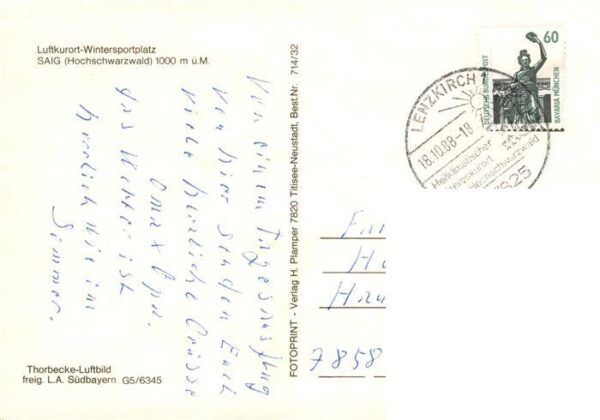 Luftkurort-Wintersportplatz
SAIG (Hochschwarzwald) 1000 m ü.M.
Von einem Tagesausflug
von hier senden Euch
viele herzliche Grüsse
Oma + Opa.
Das Wetter ist
herrlich wie im
Sommer.
Thorbecke-Luftbild
freig. L.A. Südbayern G5/6345
FOTOPRINT - Verlag H. Plamper 7820 Titisee-Neustadt, Best.Nr. 714/32
60
DEUTSCHE BUNDESPOST
BAVARIA MÜNCHEN
LENZKIRCH
18.10.88-18
Heilklimatischer
Hochschwarzwald
7858